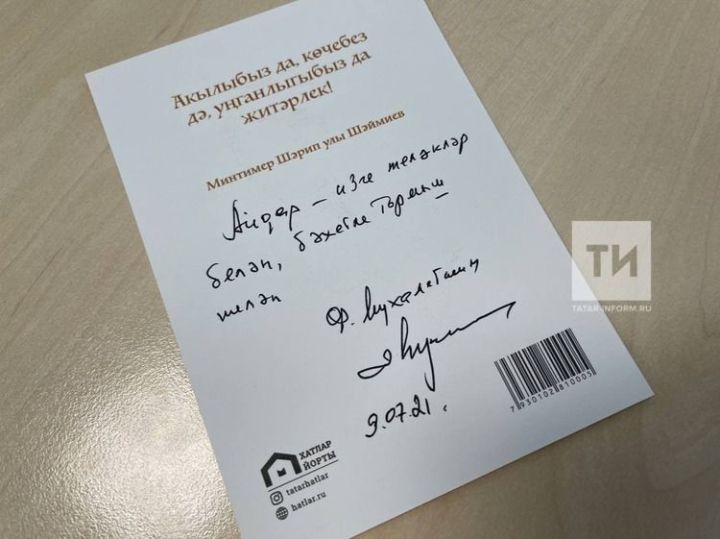 Акылыбыз да, көчебез
дә, уңганлыгыбыз да
җитәрлек!
Минтимер Шәрип улы Шәймиев
Айдар – изге теләкләр
белән, бәхетле тормыш
теләп
Ф. Мухаметшин
9.07.21.
7 930102 810005
ХАТЛАР
ЙОРТЫ
tatarhatlar
hatlar.ru
ТИ
TATAR-INFORM.RU